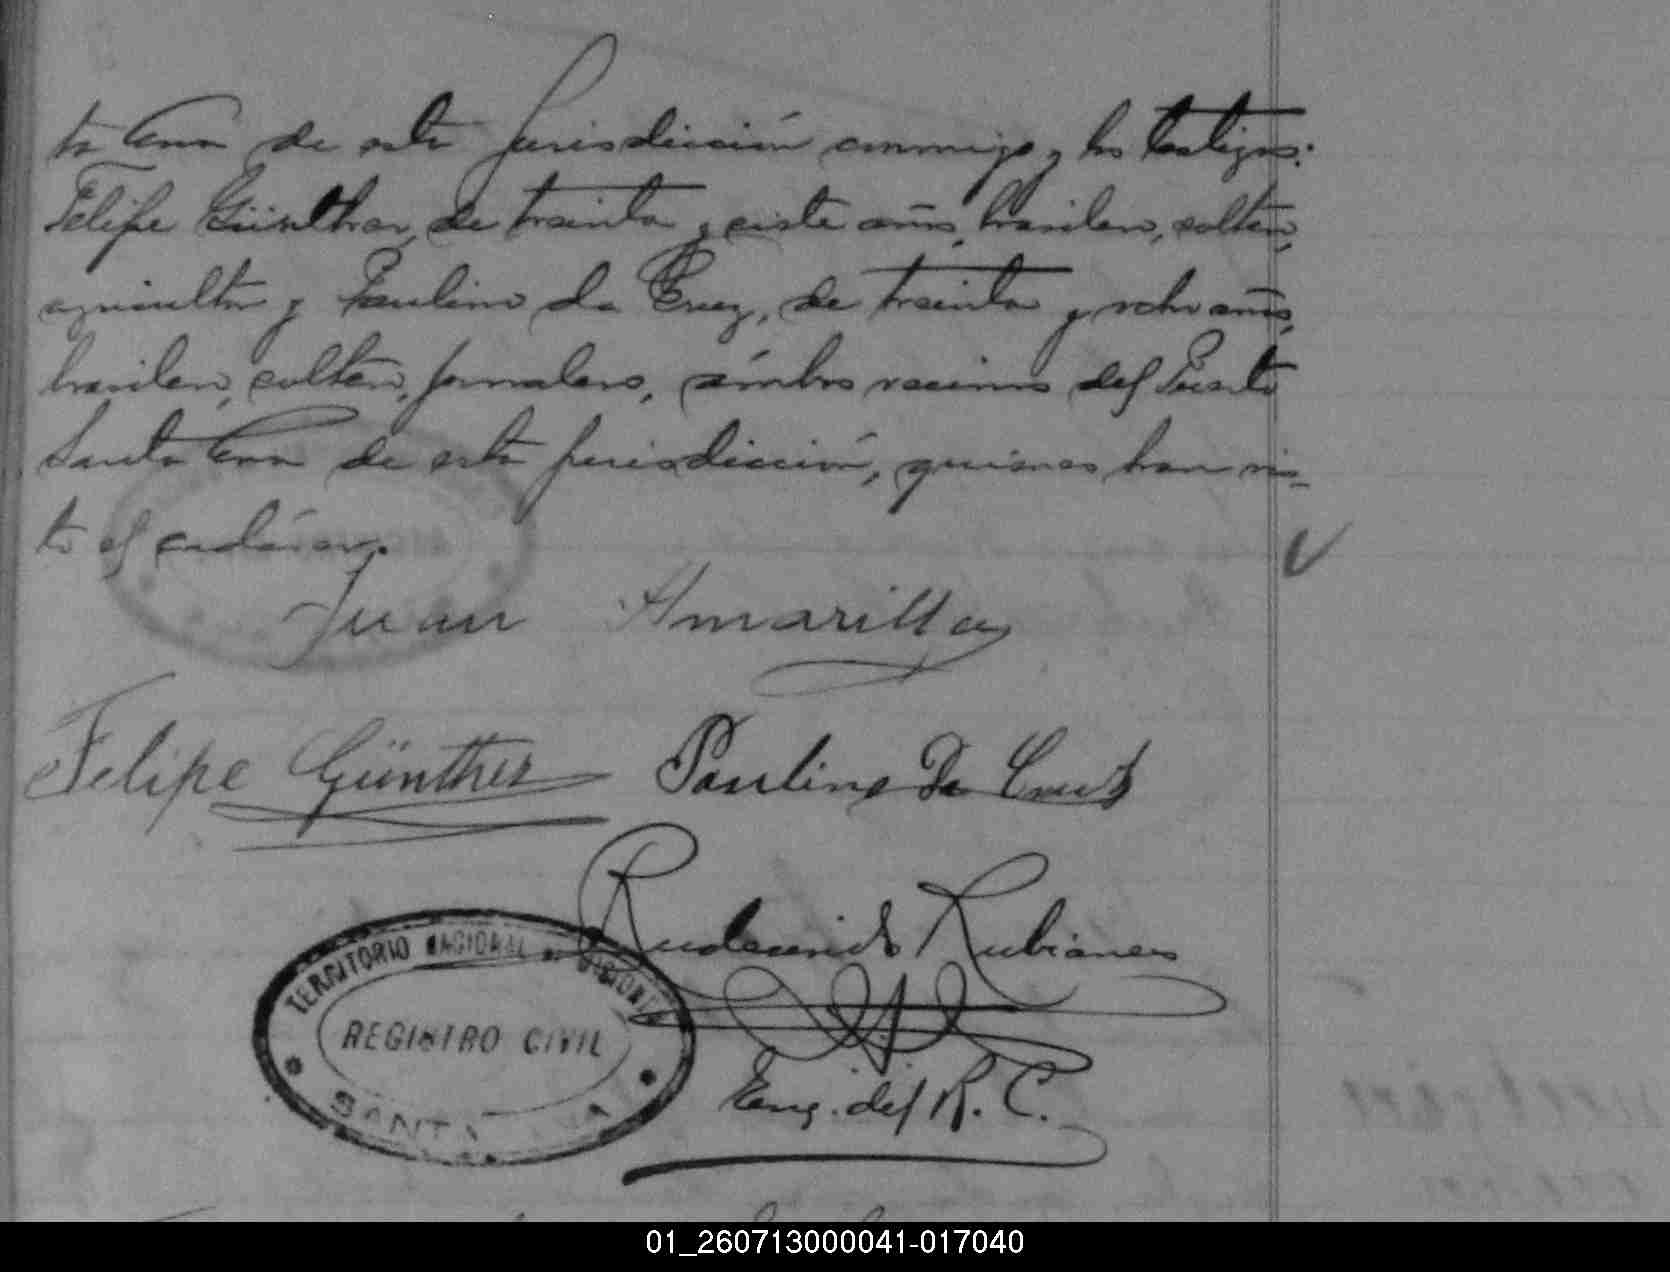 ta Ana de esta jurisdicción conmigo y los testigos:
Felipe Günther, de treinta y siete años, brasilero, soltero,
agricultor y Paulino da Cruz, de treinta y ocho años,
brasilero, soltero, jornalero, ámbos vecinos del Puerto
Santa Ana de esta jurisdicción, quienes han vis-
to el cadáver.
Juan Amarilla
Felipe Günther Paulino Da Cruz
Rudecindo Rubianes
Enc. del R. C.
TERRITORIO NACIONAL DE MISIONES
REGISTRO CIVIL
SANTA ANA
01_260713000041-017040